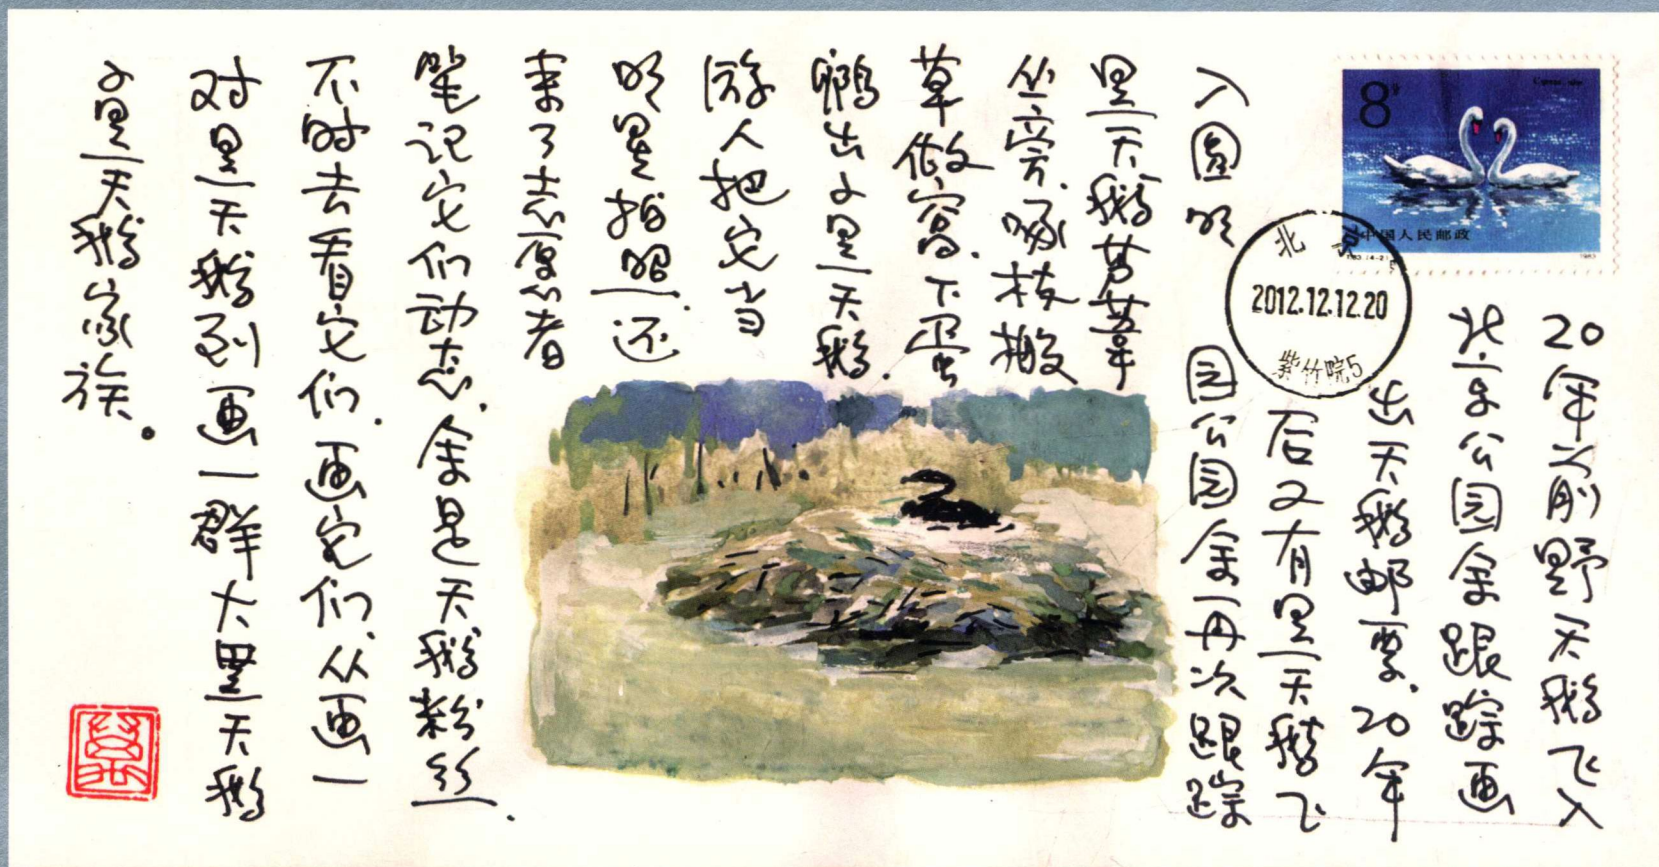 8分
中国人民邮政
1983
北京
2012.12.12.20
紫竹院5
20年前野天鹅飞入
北京公园余跟踪画
出天鹅邮票.20年
后又有黑天鹅飞
入圆明园公园余再次跟踪
黑天鹅芦苇
丛旁.啄枝搬
草做窝.下蛋
孵出小黑天鹅.
游人把它当
明星拍照.还
来了志愿者
笔记它们动态.余是天鹅粉丝.
不时去看它们.画它们.从画一
对黑天鹅到画一群大黑天鹅
小黑天鹅家族。